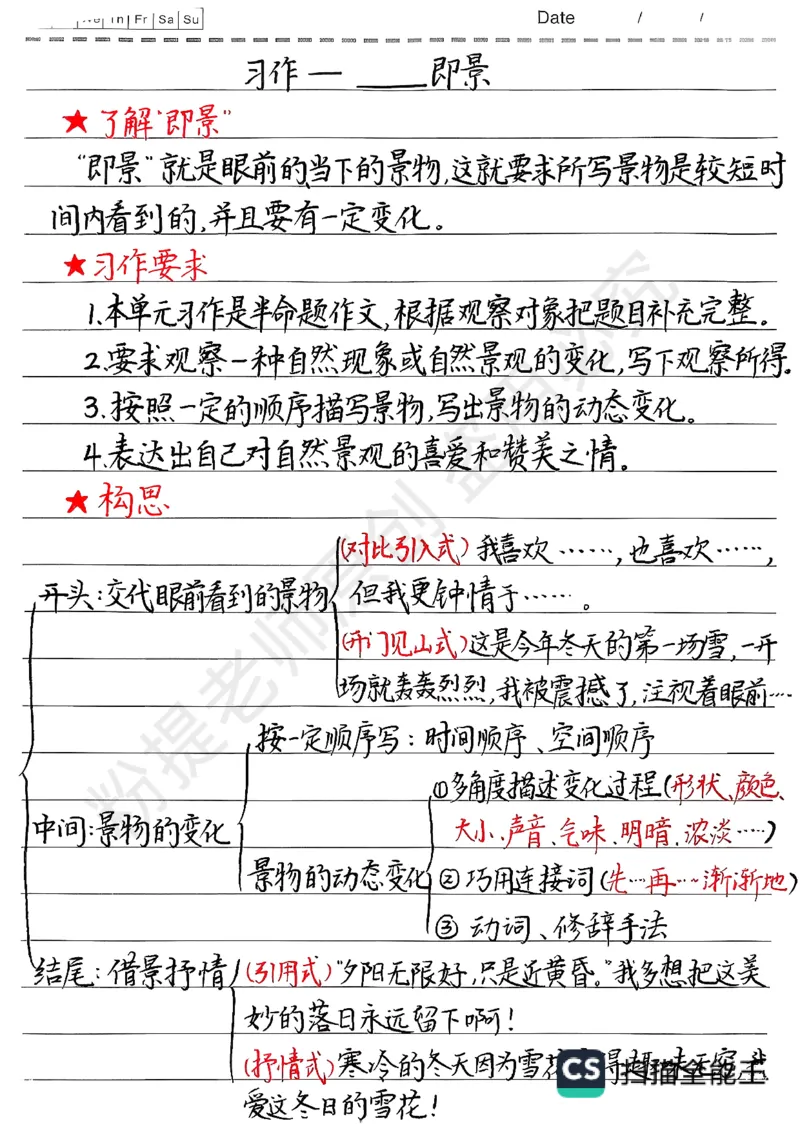 Th Fr Sa Su
Date / /
习作一 ____即景
★了解“即景”
“即景”就是眼前的、当下的景物,这就要求所写景物是较短时
间内看到的,并且要有一定变化。
★习作要求
1.本单元习作是半命题作文,根据观察对象把题目补充完整。
2.要求观察一种自然现象或自然景观的变化,写下观察所得。
3.按照一定的顺序描写景物,写出景物的动态变化。
4.表达出自己对自然景观的喜爱和赞美之情。
★构思
(对比引入式)我喜欢……,也喜欢……,
开头:交代眼前看到的景物
但我更钟情于……。
(开门见山式)这是今年冬天的第一场雪,一开
场就轰轰烈烈,我被震撼了,注视着眼前…
按一定顺序写:时间顺序、空间顺序
①多角度描述变化过程(形状、颜色、
大小、声音、气味、明暗、浓淡……)
中间:景物的变化
景物的动态变化
②巧用连接词(先…再…渐渐地)
③动词、修辞手法
结尾:借景抒情
(引用式)“夕阳无限好,只是近黄昏。”我多想把这美
妙的落日永远留下啊!
(抒情式)寒冷的冬天因为雪花
爱这冬日的雪花!
CS 扫描全能王
粉提老师原创 盗用必究